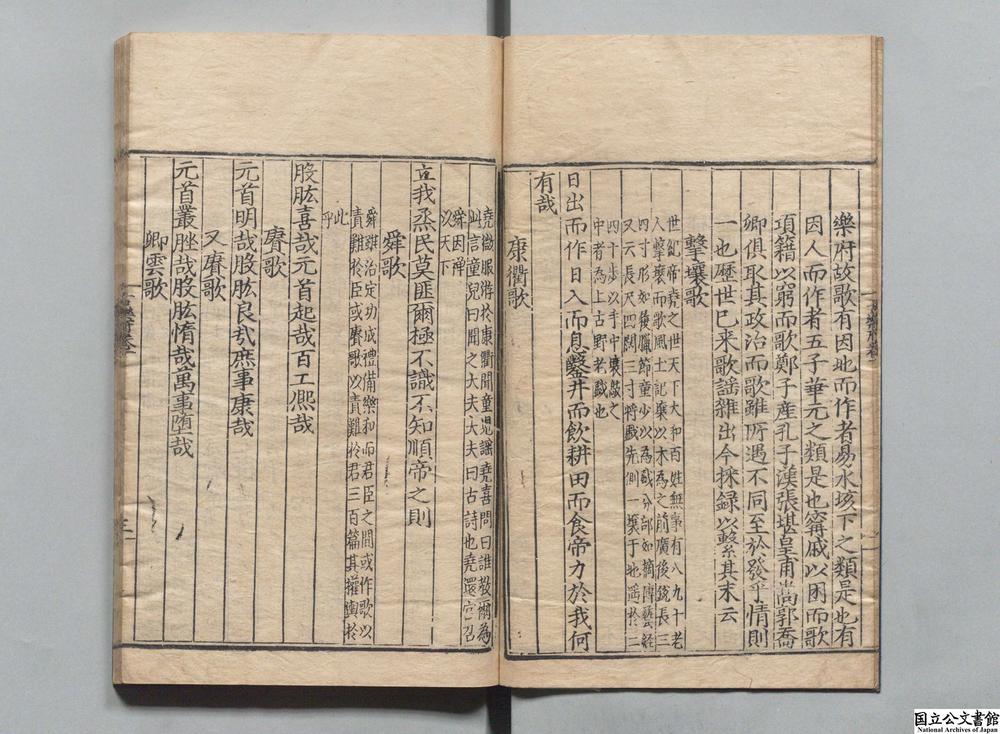 樂府故歌有因地而作者易水垓下之類是也有
因人而作者五子華元之類是也甯戚以困而歌
項籍以窮而歌鄭子産孔子漢張堪皇甫嵩郭喬
卿俱取其政治而歌雖所遇不同至於發乎情則
一也歷世已来歌謡雜出今採録以繫其末云
擊壤歌
世紀帝堯之世天下大和百姓無事有八九十老
人擊壤而歌風土記壤以木為之前廣後銳長三
四寸形如履臘節童少以為戲分部如擿博藝經
又云長尺四闊三寸将戲先側一壤于地遥於三
四十步以手中壤敲之
中者為上古野老戲也
日出而作日入而息鑿井而飲耕田而食帝力於我何
有哉
康衢歌
堯微服游於康衢聞童兒謡堯喜問曰誰教爾為
此言童兒曰聞之大夫大夫曰古詩也堯還宫召
舜因禅
以天下
立我烝民莫匪爾極不識不知順帝之則
舜歌
舜雖治定功成禮備樂和而君臣之間或作歌以
責難於臣或賡歌以責難於君三百篇其權輿於
此
乎
股肱喜哉元首起哉百工熈哉
賡歌
元首明哉股肱良哉庶事康哉
又賡歌
元首叢脞哉股肱惰哉萬事堕哉
卿雲歌
三
国立公文書館
National Archives of Japan